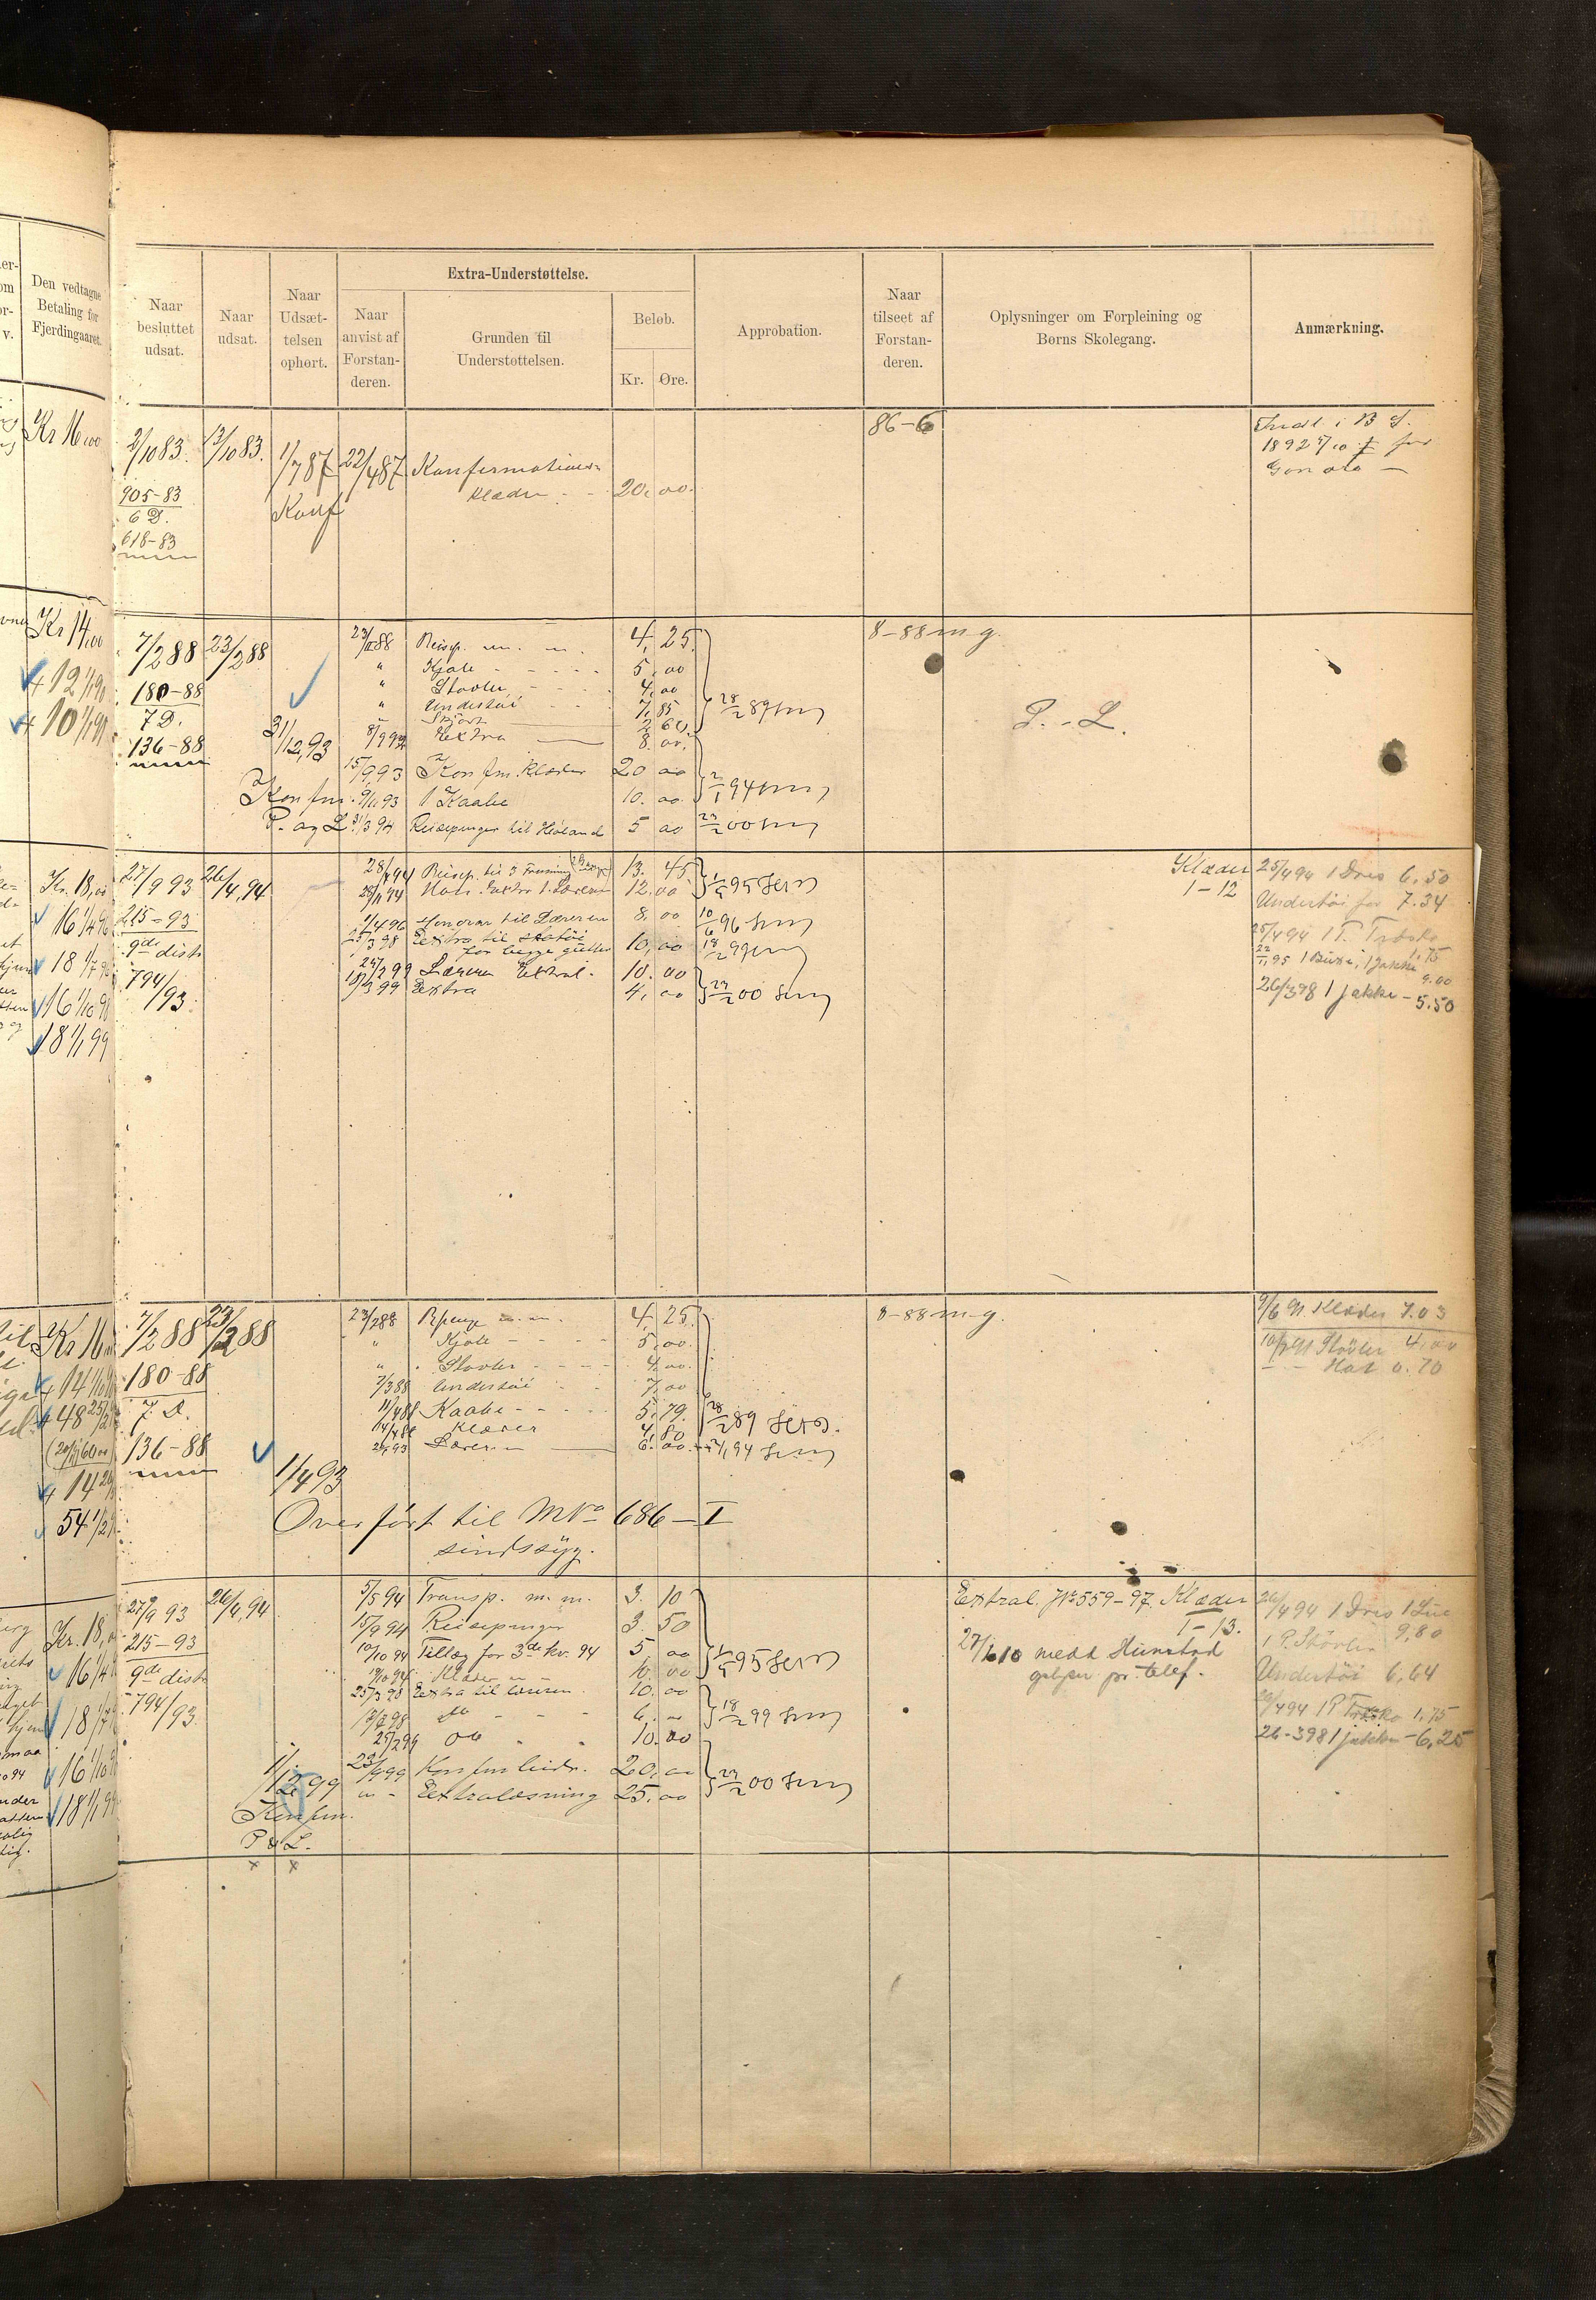 Den vedtagne
Betaling for
Fjerdingaaret.
Naar
besluttet
udsat.
Naar
udsat.
Naar
Udsæt-
telsen
ophørt.
Extra-Understøttelse.
Naar
anvist af
Forstan-
deren.
Grunden til
Understøttelsen.
Beløb.
Kr. Øre.
Approbation.
Naar
tilseet af
Forstan-
deren.
Oplysninger om Forpleining og
Børns Skolegang.
Anmærkning.
Kr 16,00
2/10 83. 13/10 83. 1/7 87 22/4 87 Konfirmations-
Klæder - - 20, 00.
905-83
6 D.
618-83
Konf
86-6
Indl i B S.
1892
Kr 14,00
+ 12 1/1 90
+ 10 1/1 91
7/2 88 23/2 88
180-88
7 D.
136-88
31/12,93
23/2 88 Reisep. m. m. 4, 25.
" Kjole - - - - 5, 00
" Støvler - - - 4, 00
" Undertøi - - 7, 85
Skjört 2 60.
8/9 92 Extra 8. 00.
15/9,93 Konfm. Klæder 20 00
Konfm. 9/11 93 1 Kaabe 10. 00.
P. og L. 31/3 94 Reisepenger til Høland 5 00
28/2 89
2/1 94
23/2 00
8-88 m g.
P. - L.
Kr. 18,00
16 1/4 96
18 1/7 96
16 1/10 98
18 1/1 99
27/9 93 26/4,94
215-93
9de distr
794/93.
28/4 94 Reisep. til 3 13. 45
12. 00
1/4 96 Honorar til Læreren 8, 00
25/3 98 Extra til skotøi
for begge gutter 10, 00
25/2 99 Læreren Extral. 10. 00
18/3 99 Extra 4, 00
1/5 95
10/6 96
18/2 99
23/2 00
Klæder
1-12
25/4 94 1 Dres 6,50
Undertøi for 7.34
25/4 94 1 P. Træsko
1,75
22/1 95 1 Buxe, 1 Jakke
9.00
26/3 98 1 jakke - 5.50
Kr 16
7/2 88 23/2 88
180-88
7 D.
136-88
23/2 88 Rpenge m. m. 4, 25.
" Kjole - - - - 5, 00.
" Støvler - - - - 4, 00.
7/3 88 Undertøi - - 7, 00
11/4 88 Kaabe - - - - 5, 79.
14/4 88 Klæder 4, 80
Læreren 6. 00.
28/2 89
2/1,94
1/4 93
Overført til MNo 686 - I
sindssyg.
8-88 m-g.
9/6 91. Klæder 7.03
Støvler 4,00
- - Hat 0.70
54 1/2
Kr. 18,00
16 1/4
18 1/7
16 1/10
18 1/1 99
27/9 93 26/4,94
215-93
9de distr
794/93.
5/5 94 Transp. m. m. 3. 10
15/9 94 Reisepenger 3. 50
10/10 94 Tillæg for 3de kv. 94 5 00
19/10 94 Klæder 10. 00
25/3 98 Extra til læreren 10. 00
13/7 98 do - - - 6. 00
25/2 99 do " " 10. 00
23/9 99 Konfmleidn. 20, 00
Extralæsning 25. 00
1/12 99
Konfm.
P & L.
1/5 95
18/2 99
23/2 00
Extral. No 559-97. Klæder
1-13.
27/6 10 medd Hunstad
pr. telef.
26/4 94 1 Dres 1 Lue
9,80
1 P. Støvler
Undertøi 6,64
26/4 94 1 P Træsko 1,75
26-3 98 1 jakke - 6,25